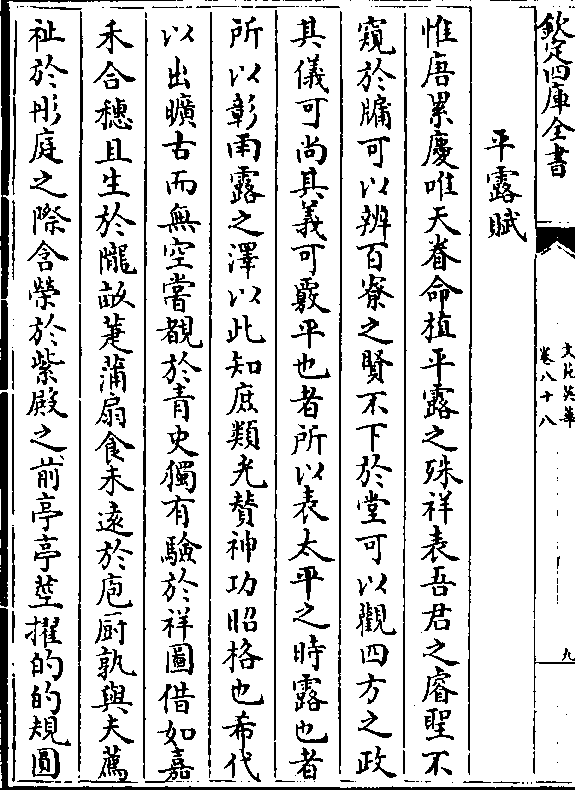 欽定四庫全書
文苑英華
卷八十八
九
平露賦
惟唐累慶唯天眷命植平露之殊祥表吾君之睿聖不
窺於牖可以辨百寮之賢不下於堂可以觀四方之政
其儀可尚其義可覈平也者所以表太平之時露也者
所以彰雨露之澤以此知庶類光贊神功昭格也希代
以出曠古而無空嘗覩於青史獨有驗於祥圖借如嘉
禾合穗且生於隴畝萐蒲扇食未遠於庖厨孰與夫薦
祉於彤庭之際含榮於紫殿之前亭亭莖擢的的規圓